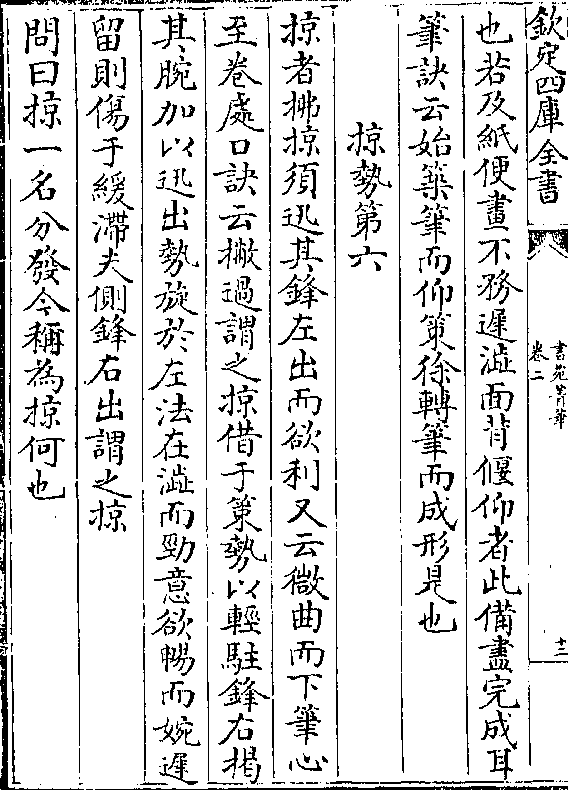 欽定四庫全書
書苑菁華
卷二
十三
也若及紙便畫不務遲澁面背偃仰者此備盡完成耳
筆訣云始築筆而仰策徐轉筆而成形是也
掠勢第六
掠者拂掠須迅其鋒左出而欲利又云微曲而下筆心
至卷處口訣云撇過謂之掠借于策勢以輕駐鋒右掲
其腕加以迅出勢旋於左法在澁而勁意欲暢而婉遲
留則傷于緩滯夫側鋒右出謂之掠
問曰掠一名分發今稱為掠何也